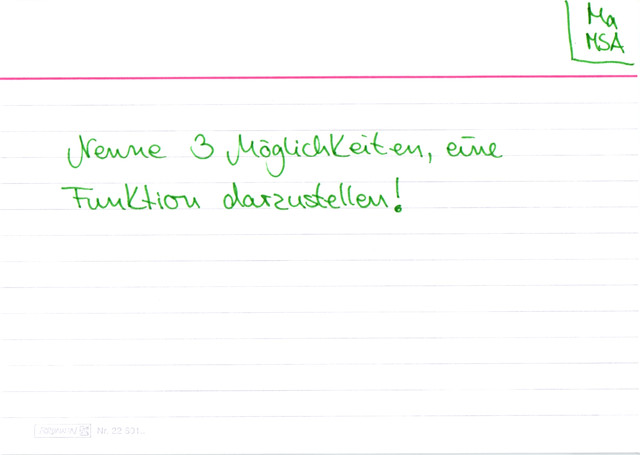 Ma
MSA
Nenne 3 Möglichkeiten, eine
Funktion darzustellen!